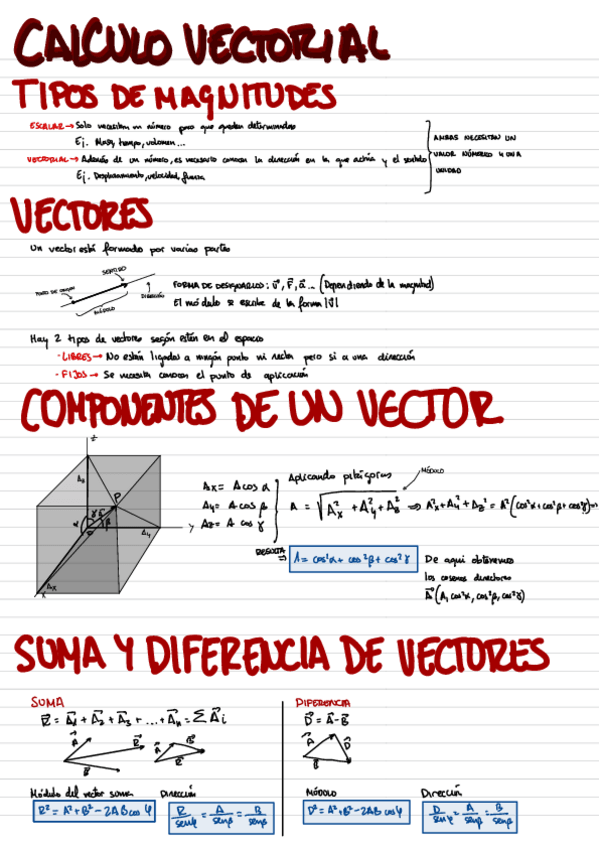 CALCULO VECTORIAL
TIPOS DE MAGNITUDES
ESCALAR → Solo necesitan un número para que queden determinados
Ej. Masa, tiempo, volumen...
VECTORIAL → Además de un número, es necesario conocer la dirección en la que actúa y el sentido
Ej. Desplazamiento, velocidad, fuerza
AMBAS NECESITAN UN
VALOR NÚMERICO Y UNA
UNIDAD
VECTORES
Un vector está formado por varias partes
SENTIDO
PUNTO DE ORIGEN
DIRECCIÓN
MÓDULO
FORMA DE DESIGNARLOS: v⃗, F⃗, a⃗... (Dependiendo de la magnitud)
El módulo se escribe de la forma |v⃗|
Hay 2 tipos de vectores según estén en el espacio
· LIBRES → No están ligados a ningún punto ni recta pero si a una dirección
· FIJOS → Se necesita conocer el punto de aplicación
COMPONENTES DE UN VECTOR
z
Az
P
γ A⃗
α β
Ay
y
Ax
x
Ax = A cos α
Ay = A cos β
Az = A cos γ
Aplicando pitágoras
MÓDULO
A = √A²x + A²y + A²z ⇒ A²x + A²y + Az² = A² (cos²α + cos²β + cos²γ) ⇒
RESULTA ⇒
1 = cos²α + cos²β + cos²γ
De aqui obtenemos
los cosenos directores
A⃗ (A, cos²α, cos²β, cos²γ)
SUMA Y DIFERENCIA DE VECTORES
SUMA
R⃗ = A⃗1 + A⃗2 + A⃗3 + ... + A⃗n = Σ A⃗i
A⃗ R⃗ B⃗
A⃗ B⃗ R⃗
Módulo del vector suma
R² = A² + B² - 2AB cos φ
Dirección
DIFERENCIA
D⃗ = A⃗ - B⃗
A⃗ D⃗ B⃗
MÓDULO
D² = A² + B² - 2AB cos φ
Dirección